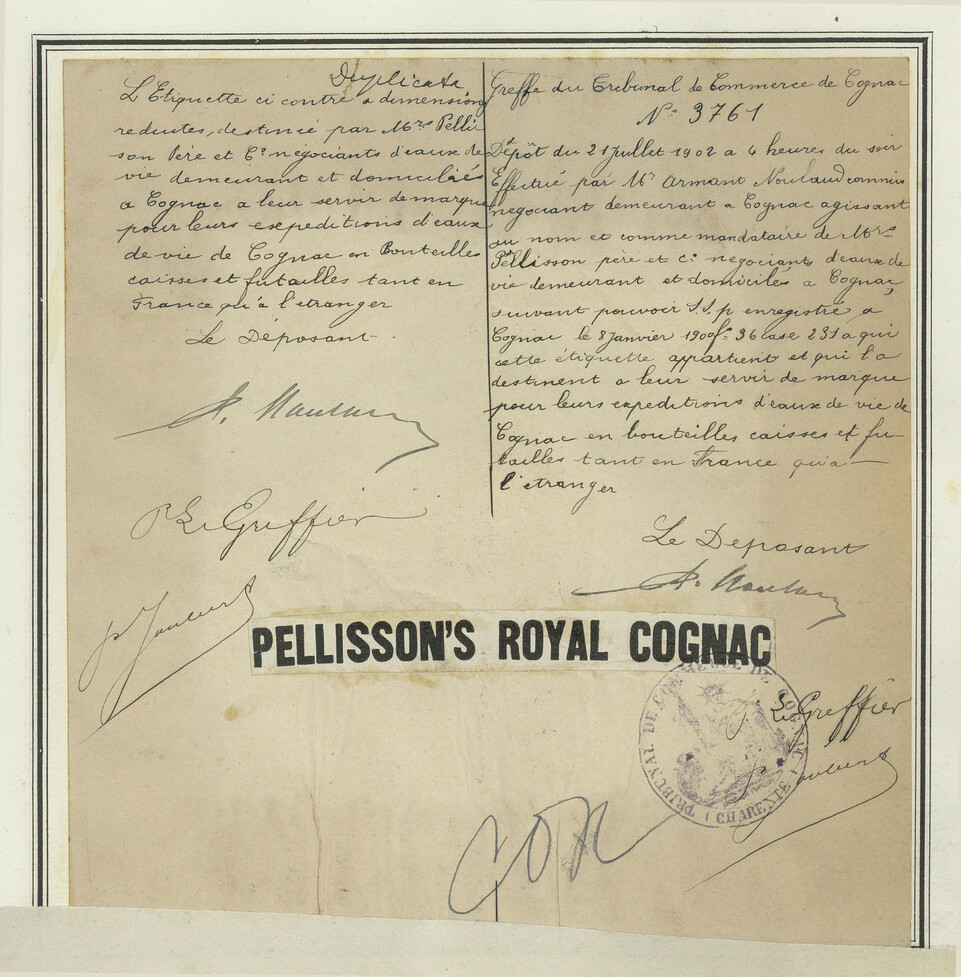 Duplicata
L'Etiquette ci contre a dimensions
reduites, destinée par Mrs Pellis
son Père et Cie négociants d'eaux de
vie demeurant et domiciliés
a Cognac a leur servir de marque
pour leurs expeditions d'eaux
de vie de Cognac en Bouteilles
caisses et futailles tant en
France qu'à l'etranger
Le Déposant
P. Le Greffier
Greffe du Tribunal de Commerce de Cognac
No 3761
Dépôt du 21 juillet 1902 a 4 heures du soir
Effectué par Mr Armant commis
negociant demeurant a Cognac agissant
au nom et comme mandataire de Mrs
Pellisson père et Cie negociants d'eaux de
vie demeurant et domiciliés a Cognac,
suivant pouvoir S.S.p enregistré a
Cognac le 8 Janvier 1900 fo 36 case 231 a qui
cette étiquette appartient et qui la
destinent a leur servir de marque
pour leurs expeditions d'eaux de vie de
Cognac en bouteilles caisses et fu-
tailles tant en France qu'a
l'etranger
Le Deposant
PELLISSON'S ROYAL COGNAC
Le Greffier
TRIBUNAL DE COMMERCE DE COGNAC (CHARENTE)